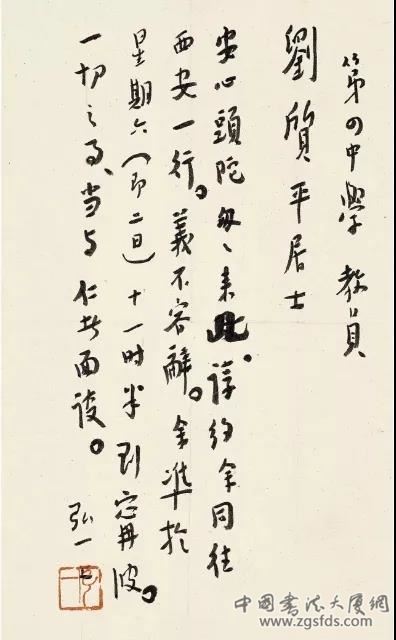 第四中學 教員
劉質平居士
安心頭陀匆〻来此。諄約余同往
西安一行。義不容辭。余準於
星期六(即二日)十一时半到甯波。
一切之事、当与仁者面談。
弘一
中國書法大厦網
www.zgsfds.com